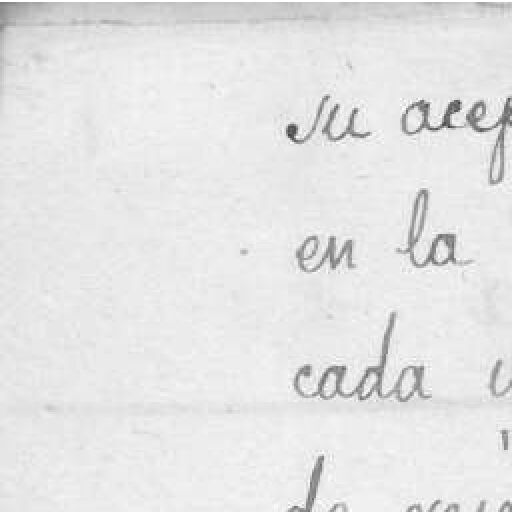 su acep
en la
cada
de